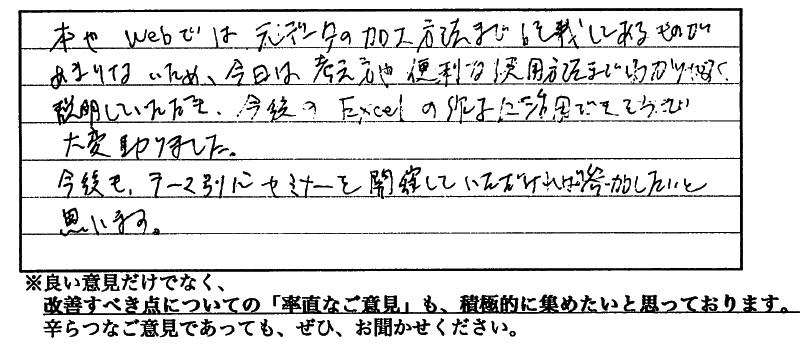 本や Webでは 元データの加工方法まで記載してあるものが
あまりないため、今日は考え方や便利な使用方法まで分かりやすく
説明していただき、今後のExcelの作成に活用できそうで
大変助りました。
今後も、テーマ別にセミナーを開催していただければ参加したいと
思います。
※良い意見だけでなく、
改善すべき点についての「率直なご意見」も、積極的に集めたいと思っております。
辛らつなご意見であっても、ぜひ、お聞かせください。